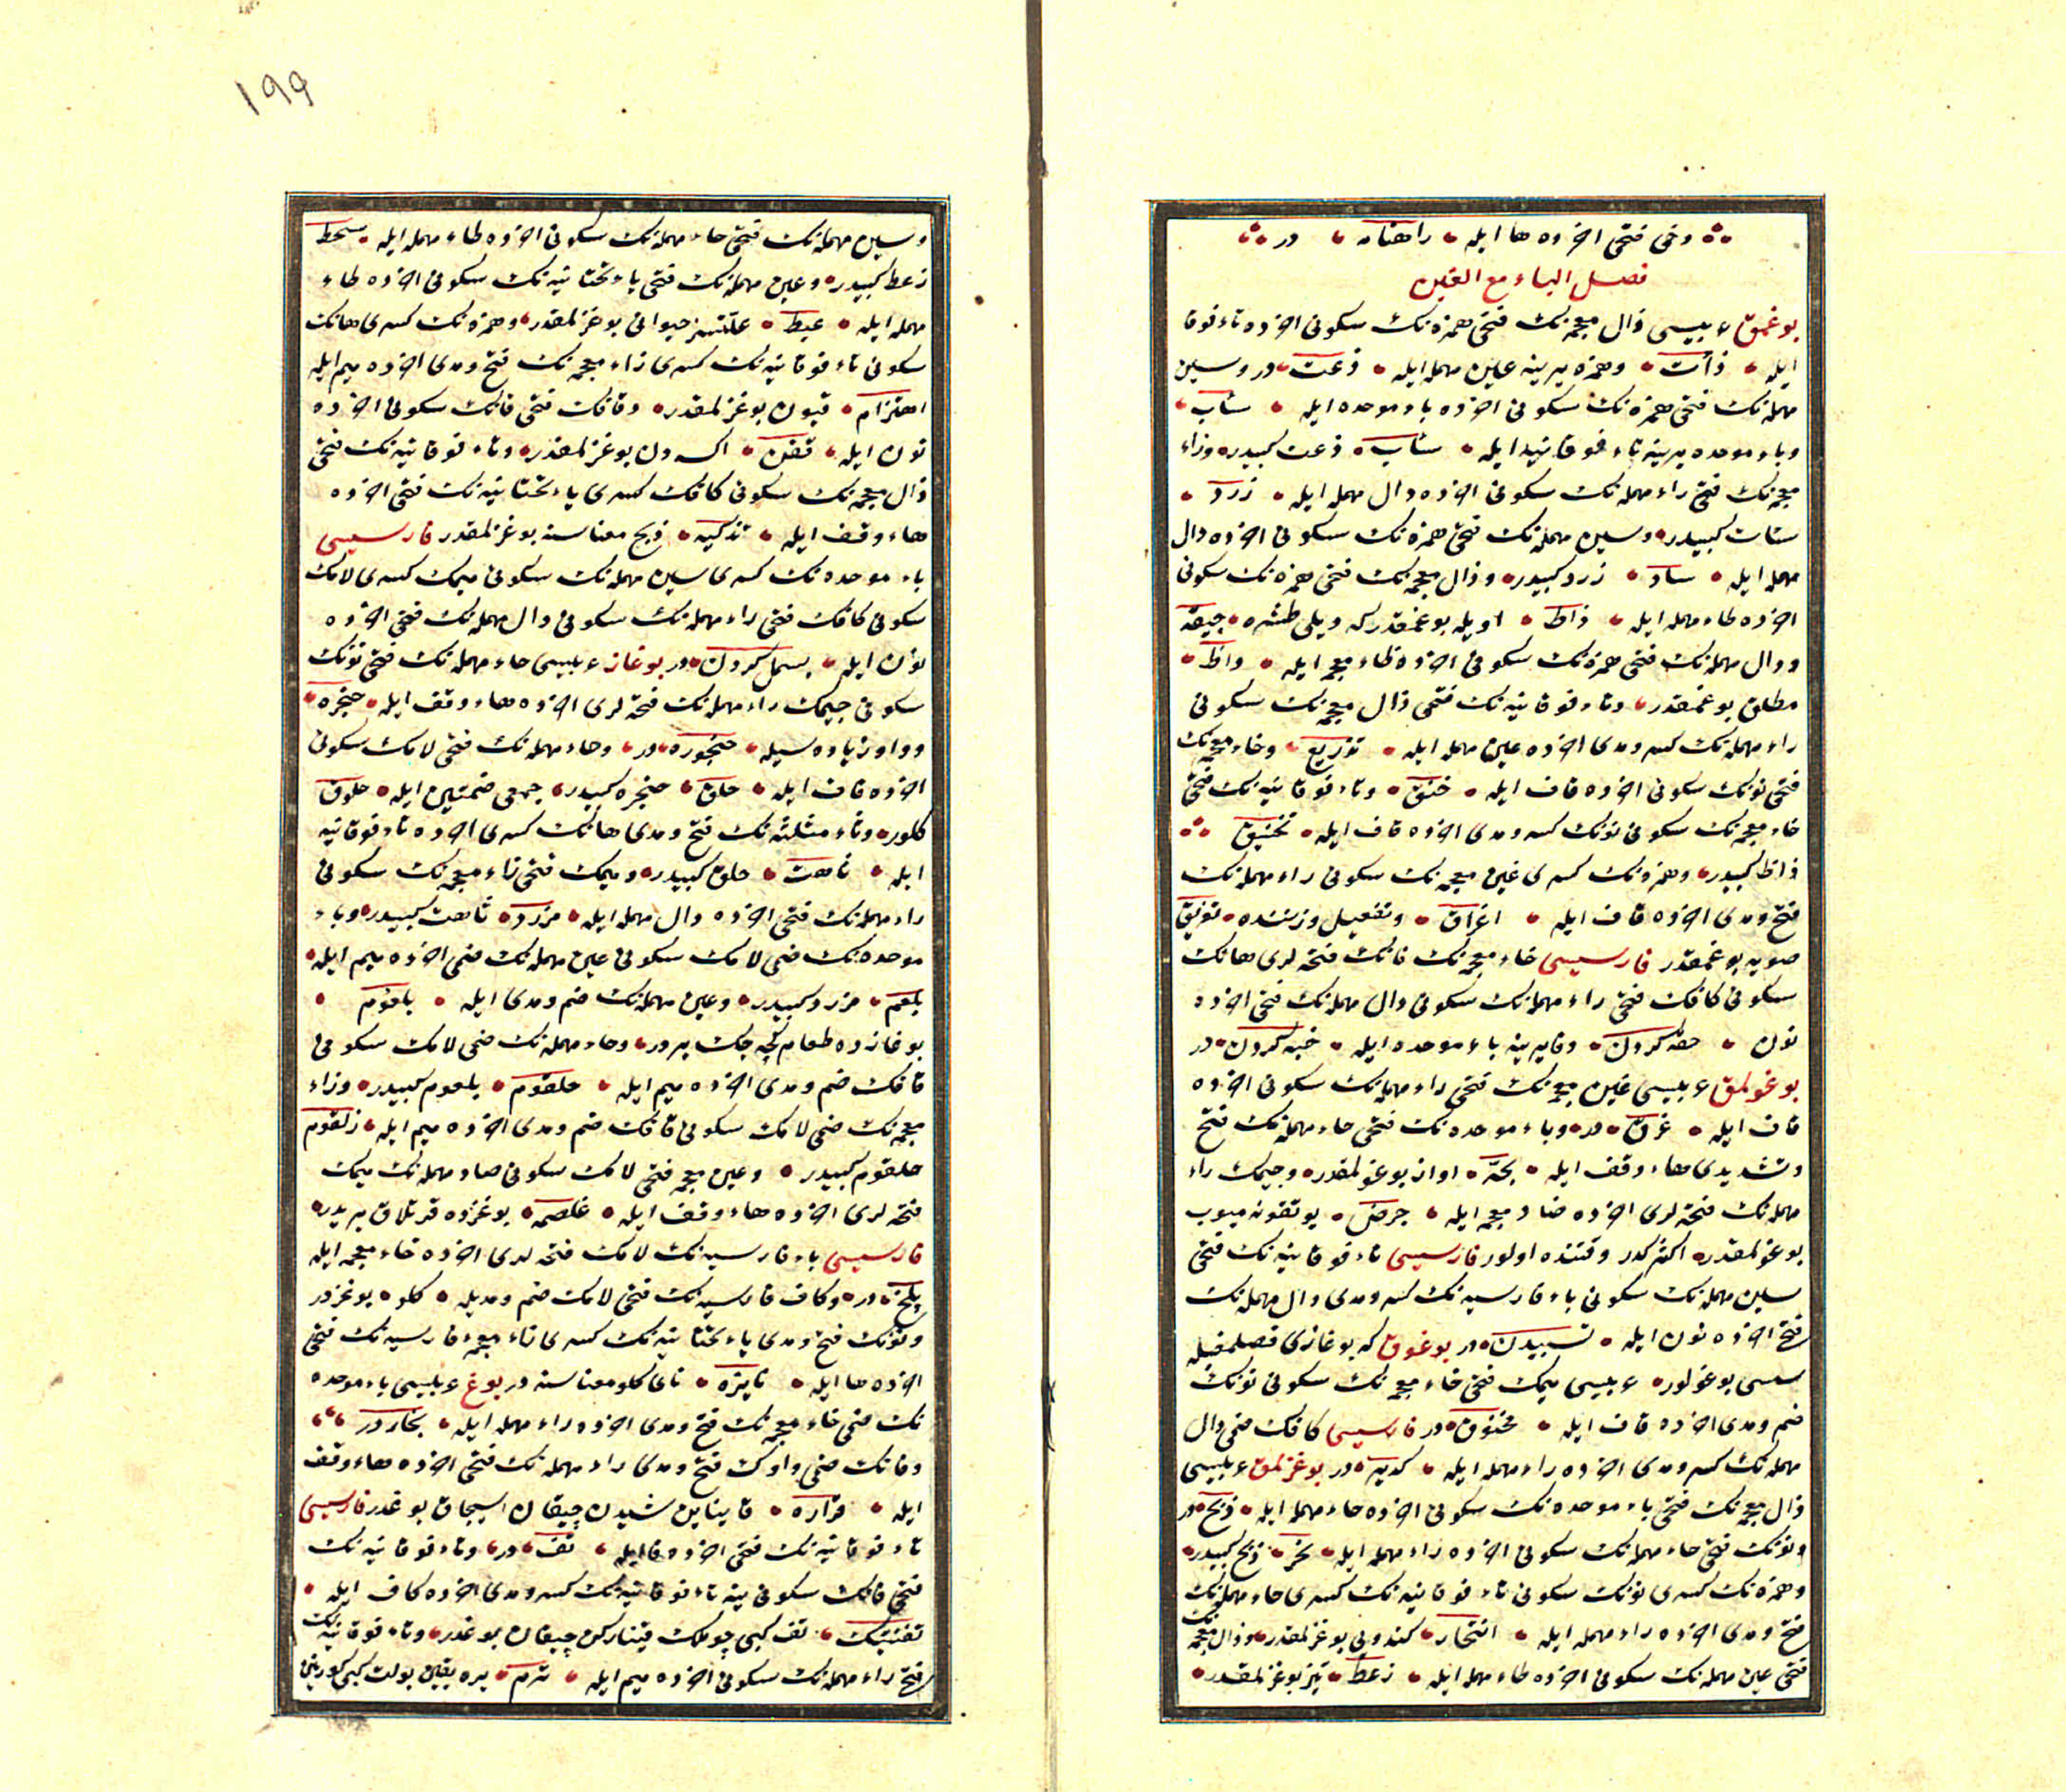 ونى فتحى اخرده ها ايله راهنامه در
فصل الباء مع الغين
بوغمق عربيسى ذال معجمه نك فتحى همزه نك سكونى اخرده تاء فوقا
ايله ذأت وهمزه يرينه عين مهمله ايله ذعت در وسين
مهمله نك فتحى همزه نك سكونى اخرده باء موحده ايله سأب
وباء موحده يرينه تاء فوقانيه ايله سأت ذعت كبيدر وزاء
معجمه نك فتحى راء مهمله نك سكونى اخرده دال مهمله ايله زرد
سأت كبيدر وسين مهمله نك فتحى همزه نك سكونى اخرده دال
مهمله ايله سأد زرد كبيدر وذال معجمه نك فتحى همزه نك سكونى
اخرده طاء مهمله ايله ذأط اويله بوغمقدر كه ديلى طشره چيقه
ودال مهمله نك فتحى همزه نك سكونى اخرده ظاء معجمه ايله دأظ
مطلق بوغمقدر وتاء فوقانيه نك فتحى ذال معجمه نك سكونى
راء مهمله نك كسر ومدى اخرده عين مهمله ايله تذريع وخاء معجمه نك
فتحى نونك سكونى اخرده قاف ايله خنق وتاء فوقانيه نك فتحى
خاء معجمه نك سكونى نونك كسر ومدى اخرده قاف ايله تخنيق
ذأظ كبيدر وهمزه نك كسرى غين معجمه نك سكونى راء مهمله نك
فتح ومدى اخرده قاف ايله اغراق وتفعيل وزننده تغريق
صويه بوغمقدر فارسيسى خاء معجمه نك فانك فتحه لرى هانك
سكونى كافك فتحى راء مهمله نك سكونى دال مهمله نك فتحى اخرده
نون خفه كردن وفا يرينه باء موحده ايله خبه كردن در
بوغولمق عربيسى غين معجمه نك فتحى راء مهمله نك سكونى اخرده
قاف ايله غرق در وباء موحده نك فتحى حاء مهمله نك فتح
وتشديدى هاء وقف ايله بحّه اواز بوغولمقدر وجيمك راء
مهمله نك فتحه لرى اخرده ضاد معجمه ايله جرض يوتقونه ميوب
بوغولمقدر اكثر كدر وقتنده اولور فارسيسى تاء فوقانيه نك فتحى
سين مهمله نك سكونى باء فارسيه نك كسر ومدى دال مهمله نك
فتحى اخرده نون ايله تسبيدن در بوغوق كه بوغازى قصلمغيله
سسى بوغولور عربيسى ميمك فتحى خاء معجمه نك سكونى نونك
ضم ومدى اخرده قاف ايله مخنوق در فارسيسى كافك ضمى دال
مهمله نك كسر ومدى اخرده راء مهمله ايله كدير در بوغزلمق عربيسى
ذال معجمه نك فتحى باء موحده نك سكونى اخرده حاء مهمله ايله ذبح در
ونونك فتحى حاء مهمله نك سكونى اخرده راء مهمله ايله نحر ذبح كبيدر
وهمزه نك كسرى نونك سكونى تاء فوقانيه نك كسرى حاء مهمله نك
فتح ومدى اخرده راء مهمله ايله انتحار كندويى بوغزلمقدر وذال معجمه نك
فتحى عين مهمله نك سكونى اخرده طاء مهمله ايله ذعط تيز بوغزلمقدر
١٩٩
وسين مهمله نك فتحى حاء مهمله نك سكونى اخرده طاء مهمله ايله سحط
ذعط كبيدر وعين مهمله نك فتحى ياء تحتانيه نك سكونى اخرده طاء
مهمله ايله عيط علتسز حيوانى بوغزلمقدر وهمزه نك كسرى هانك
سكونى تاء فوقانيه نك كسرى زاء معجمه نك فتح ومدى اخرده ميم ايله
اهتزام قيون بوغزلمقدر وقافك فتحى فانك سكونى اخرده
نون ايله قفن اكسه دن بوغزلمقدر وتاء فوقانيه نك فتحى
ذال معجمه نك سكونى كافك كسرى ياء تحتانيه نك فتحى اخرده
هاء وقف ايله تذكيه ذبح معناسنه بوغزلمقدر فارسيسى
باء موحده نك كسرى سين مهمله نك سكونى ميمك كسرى لامك
سكونى كافك فتحى راء مهمله نك سكونى دال مهمله نك فتحى اخرده
نون ايله بسمل كردن در بوغاز عربيسى حاء مهمله نك فتحى نونك
سكونى جيمك راء مهمله نك فتحه لرى اخرده هاء وقف ايله حنجره
وواو زياده سيله حنجوره در وحاء مهمله نك فتحى لامك سكونى
اخرده قاف ايله حلق حنجره كبيدر جمعى ضمتين ايله حلوق
كلور وثاء مثلثه نك فتح ومدى هانك كسرى اخرده تاء فوقانيه
ايله ثاهت حلق كبيدر وميمك فتحى زاء معجمه نك سكونى
راء مهمله نك فتحى اخرده دال مهمله ايله مزرد ثاهت كبيدر وباء
موحده نك ضمى لامك سكونى عين مهمله نك ضمى اخرده ميم ايله
بلعم مزرد كبيدر وعين مهمله نك ضم ومدى ايله بلعوم
بوغازده طعام كچه جك يردر وحاء مهمله نك ضمى لامك سكونى
قافك ضم ومدى اخرده ميم ايله حلقوم بلعوم كبيدر وزاء
معجمه نك ضمى لامك سكونى قافك ضم ومدى اخرده ميم ايله زلقوم
حلقوم كبيدر وغين معجمه فتحى لامك سكونى صاد مهمله نك ميمك
فتحه لرى اخرده هاء وقف ايله غلصمه بوغزده قرتلاق يريدر
فارسيسى باء فارسيه نك لامك فتحه لرى اخرده خاء معجمه ايله
پلخ در وكاف فارسيه نك فتحى لامك ضم ومديله كلو بوغزدر
ونونك فتح ومدى ياء تحتانيه نك كسرى زاء معجمه فارسيه نك فتحى
اخرده ها ايله نايژه ناى كلو معناسنه در بوغ عربيسى باء موحده
نك ضمى خاء معجمه نك فتح ومدى اخرده راء مهمله ايله بخار در
وفانك ضمى واوك فتح ومدى راء مهمله نك فتحى اخرده هاء وقف
ايله فواره قاينايان شيدن چيقان اسيجاق بوغدر فارسيسى
تاء فوقانيه نك فتحى اخرده فا ايله تف در وتاء فوقانيه نك
فتحى فانك سكونى ينه تاء فوقانيه نك كسر ومدى اخرده كاف ايله
تفتيك تف كبى چوملك قيناركن چيقان بوغدر وتاء فوقانيه نك
فتحى راء مهمله نك سكونى اخرده ميم ايله ترم يره يقين بولت كبى كورينن